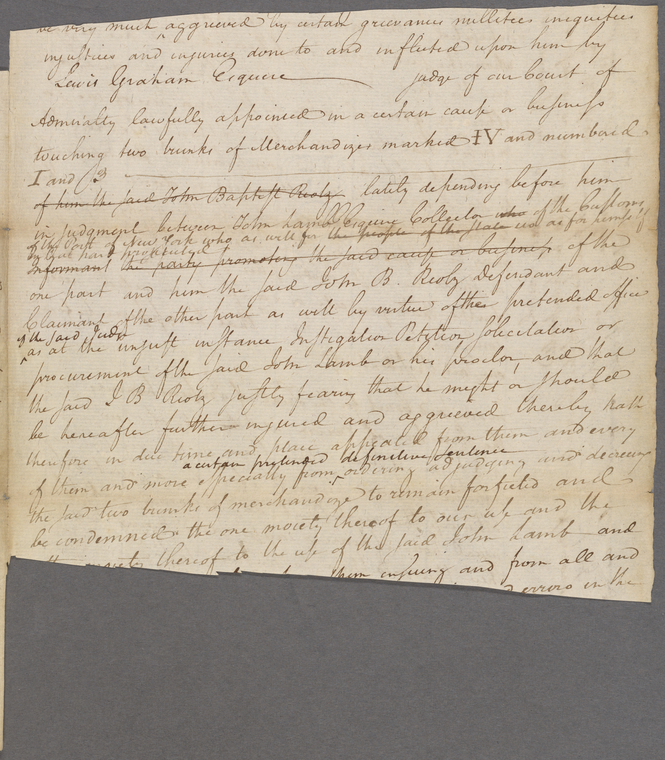 be very much aggrieved by certain grievances nullities iniquities
injustices and injuries done to and inflicted upon him by
Lewis Graham Esquire judge of our Court of
Admiralty lawfully appointed in a certain cause or business
touching two trunks of Merchandizes marked IV and numbered
I and 3
of him the said John Baptist Rioly lately depending before him
in judgment between John Lamb Esquire Collector who of the Customs
of the Port of New York who as well for the people of the State as as for himself
in that part prosecuted
Informant the party promoting the said cause or business of the
one part and him the said John B. Rioly defendant and
Claimant of the other part as well by virtue of the pretended office
of the said Judge
as at the unjust instance Instigation Petition Solicitation or
procurement of the said John Lamb or his proctor and that
the said J B Rioly justly fearing that he might or should
be hereafter further injured and aggrieved thereby hath
therefore in due time and place appealed from them and every
a certain pretended definitive sentence
of them and more especially from ordering adjudging and decreeing
the said two trunks of merchandize to remain forfeited and
be condemned the one moiety thereof to our use and the
moiety thereof to the use of the said John Lamb and
them ensuing and from all and
errors in the